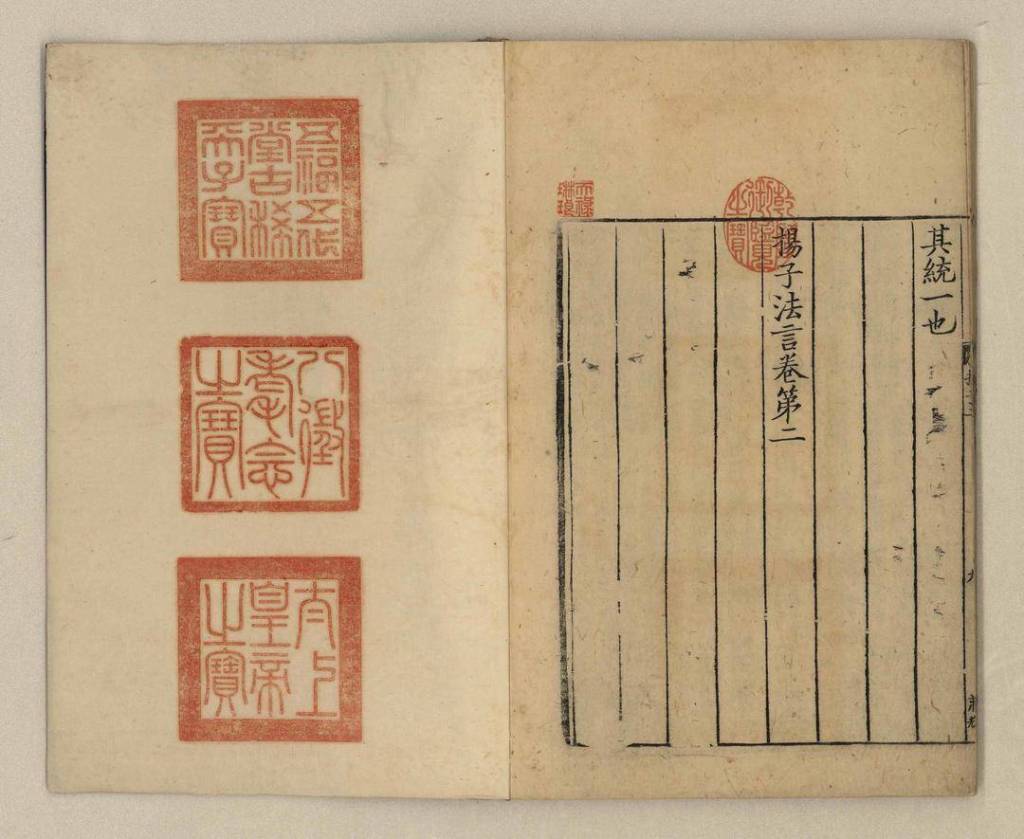 其統一也
揚子法言卷第二
乾隆
御覽
之寶
天祿
琳琅
五福五代
堂古稀
天子寶
八徵
耄念
之寶
太上
皇帝
之寶